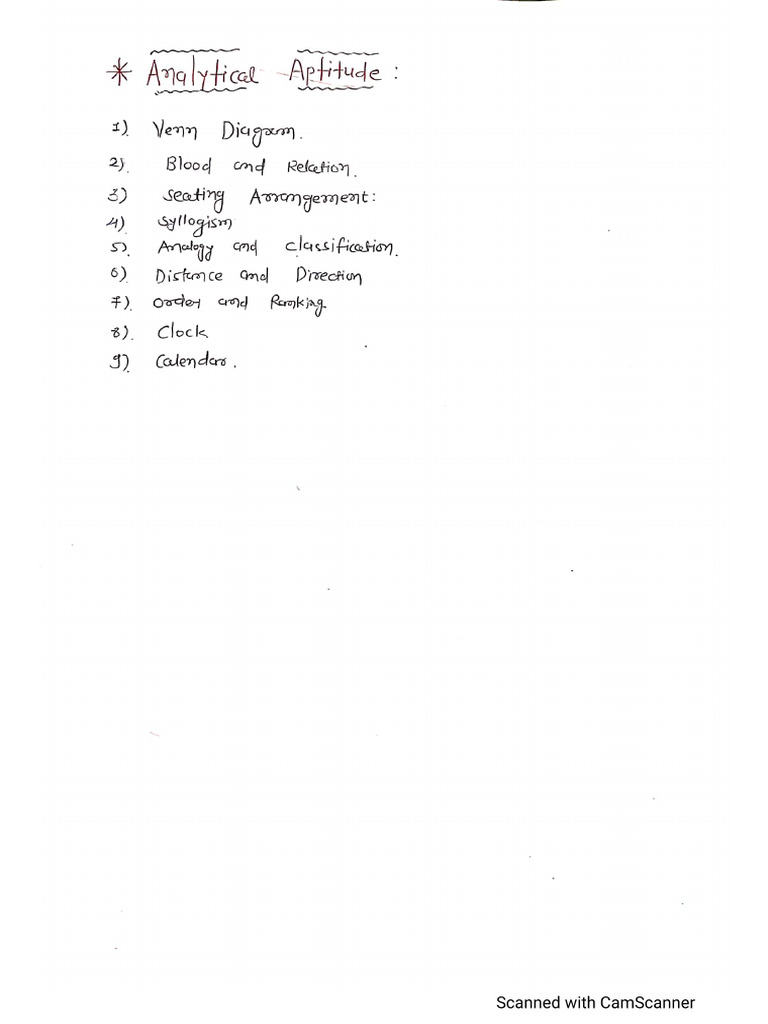 * Analytical Aptitude :
1) Venn Diagram.
2) Blood and Relation.
3) Seating Arrangement:
4) Syllogism
5) Analogy and classification.
6) Distance and Direction
7) Order and Ranking
8) Clock
9) Calendar.
Scanned with CamScanner